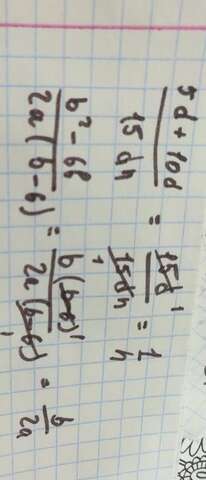 (5d + 10d)/(15dn) = (15d)/(15dn) = 1/n
(b² - 6b)/(2a(b-6)) = (b(b-6))/(2a(b-6)) = b/2a